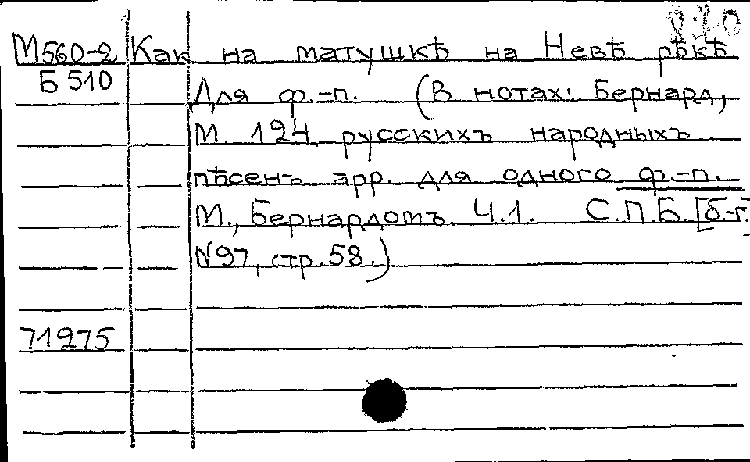 М560-2 Как на матушкѣ на Невѣ рѣкѣ
Б 510
Для ф.-п. (В нотах: Бернард,
М. 124 русскихъ народныхъ
пѣсенъ арр. для одного ф.-п.
М., Бернардомъ. Ч.1. С.П.Б. [б-г.]
№97, стр. 58.)
71275